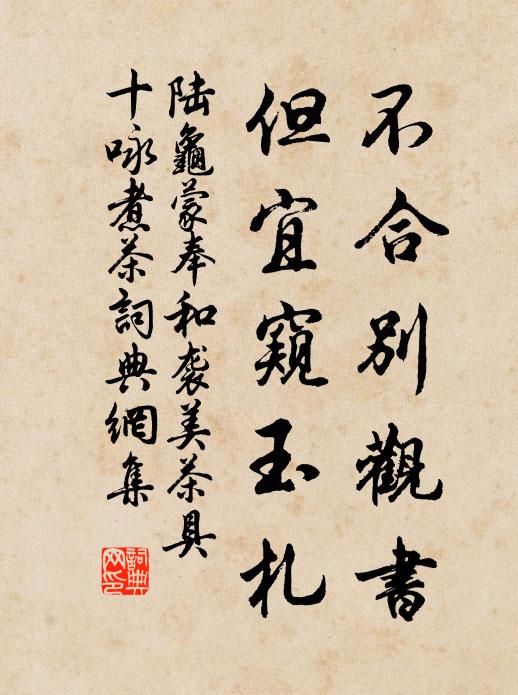 不合別觀書
但宜窺玉札
陸龜蒙奉和袭美茶具
十咏煮茶詞典網集
詞典网印